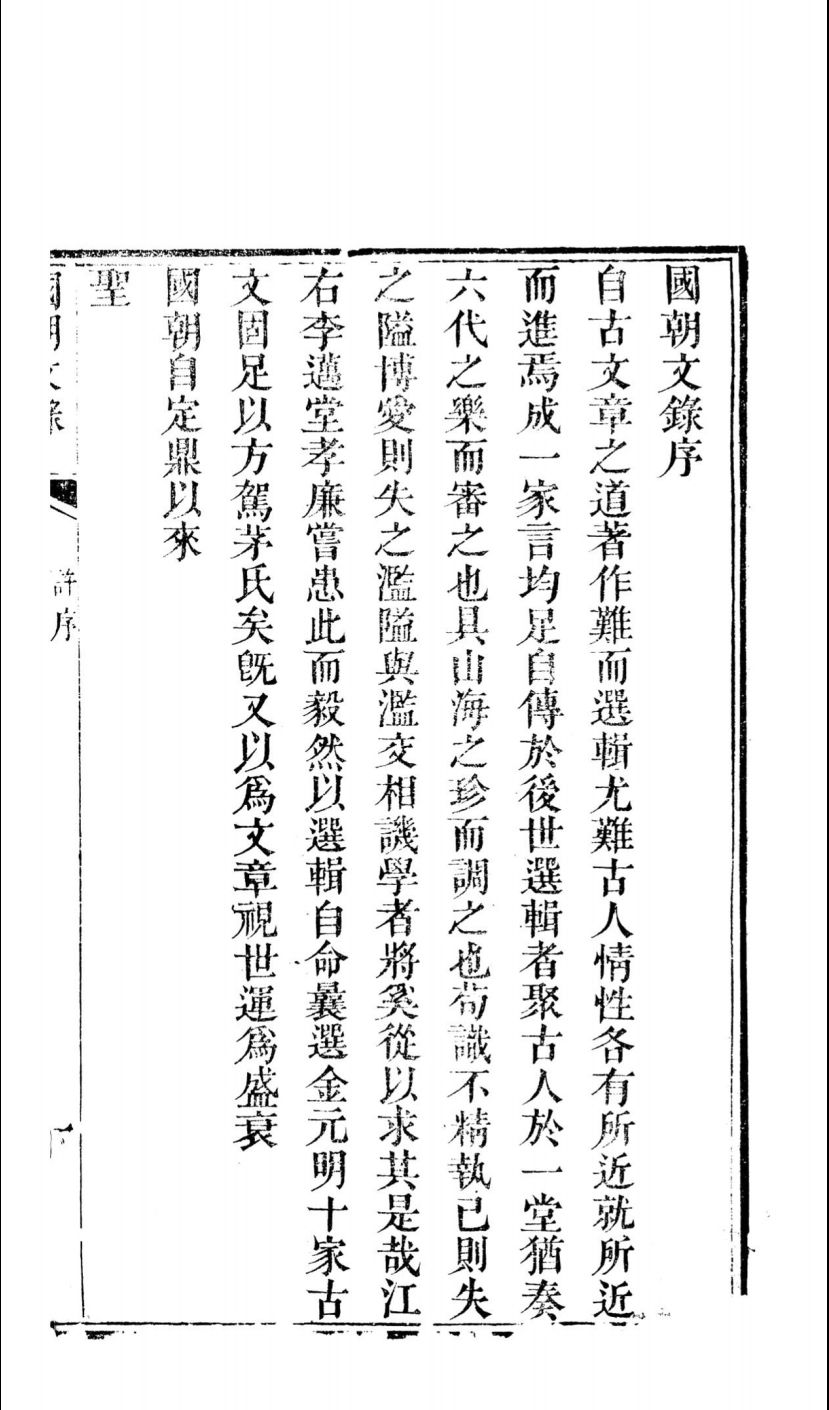 國朝文錄序
自古文章之道著作難而選輯尤難古人情性各有所近就所近
而進焉成一家言均足自傳於後世選輯者聚古人於一堂猶奏
六代之樂而審之也具山海之珍而調之也苟識不精執己則失
之隘博愛則失之濫隘與濫交相譏學者將奚從以求其是哉江
右李邁堂孝廉嘗患此而毅然以選輯自命曩選金元明十家古
文固足以方駕茅氏矣旣又以爲文章視世運爲盛衰
國朝自定鼎以來
聖
國朝文錄
許序